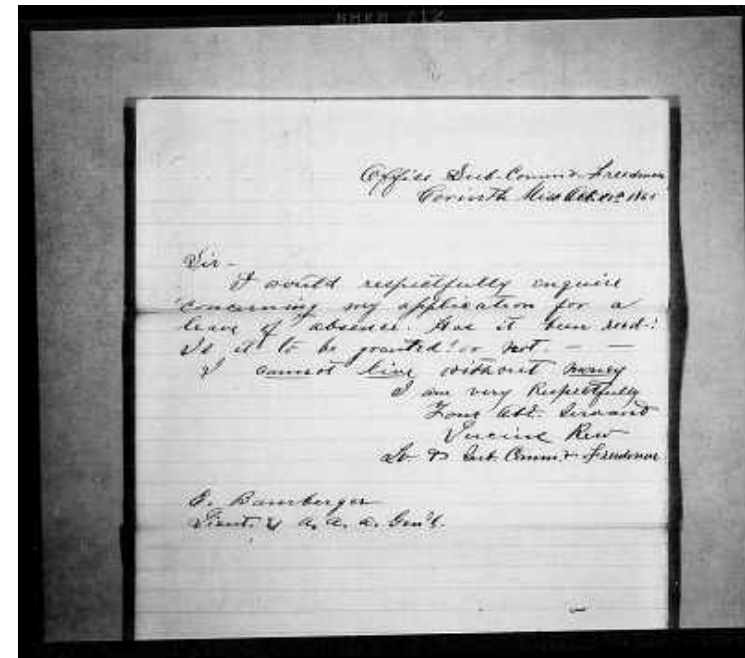 Office Sub. Comm'r Freedmen
Corinth Miss Oct. 1865
Sir -
I would respectfully enquire
concerning my application for a
leave of absence. Has it been recd-!
Is it to be granted! or not. — —
I cannot live without money
I am very Respectfully
Your Obt. Servant
Lt & Sub. Comm.r Freedmen
E. Bamberger
Lieut. & A. A. A. Gen'l.